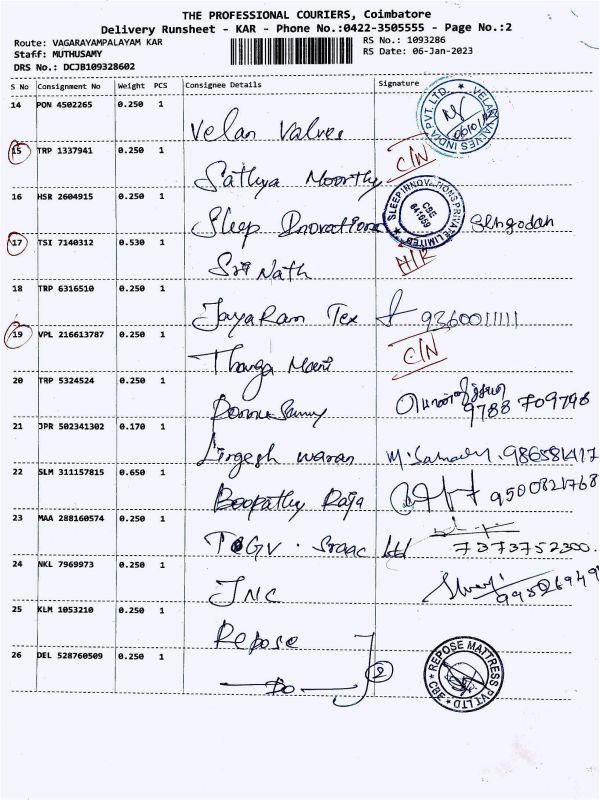 THE PROFESSIONAL COURIERS, Coimbatore
Delivery Runsheet - KAR - Phone No.:0422-3505555 - Page No.:2
Route: VAGARAYAMPALAYAM KAR
RS No.: 1093286
Staff: MUTHUSAMY
RS Date: 06-Jan-2023
DRS No.: DCJB109328602
S No Consignment No Weight PCS Consignee Details Signature
14 PON 4502265 0.250 1 Velan Valves
VELAN VALVES INDIA PVT. LTD.
15 TRP 1337941 0.250 1 Sathya Moorthy C/N
16 HSR 2604915 0.250 1 Sleep Inovations Sengodan
SLEEP INNOVATIONS PRIVATE LIMITED
CBE
641659
17 TSI 7140312 0.530 1 Sri Nath
18 TRP 6316510 0.250 1 Jayaram Tex 9360011111
19 VPL 216613787 0.250 1 Thanga Mani C/N
20 TRP 5324524 0.250 1 Ponnusamy 9788 709798
21 JPR 502341302 0.170 1 waran
22 SLM 311157815 0.650 1 Boopathy Raja 9500821768
23 MAA 288160574 0.250 1 Ltd 7373752300.
24 NKL 7969973 0.250 1 JNC
25 KLM 1053210 0.250 1 Repose
26 DEL 528760509 0.250 1 Do 2
REPOSE MATTRESS PVT LTD
CBE